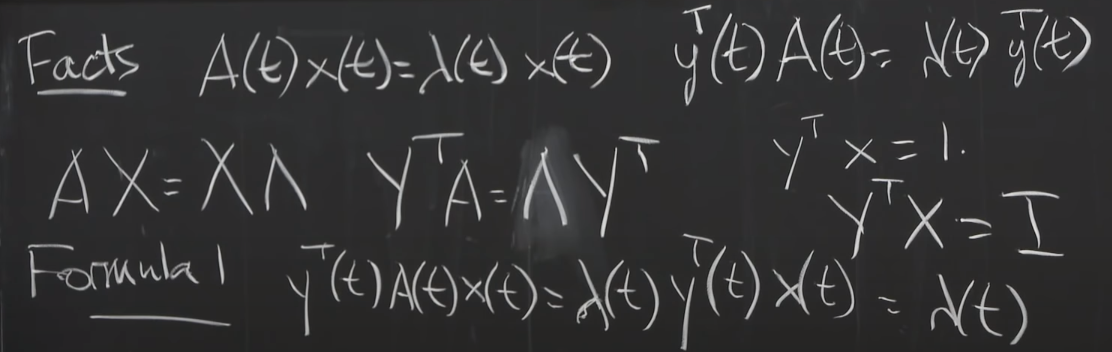 Facts A(t) x(t) = λ(t) x(t) yᵀ(t) A(t) = λ(t) yᵀ(t)
AX = XΛ YᵀA = ΛYᵀ yᵀ x = 1.
YᵀX = I
Formula 1 yᵀ(t) A(t) x(t) = λ(t) yᵀ(t) x(t) = λ(t)